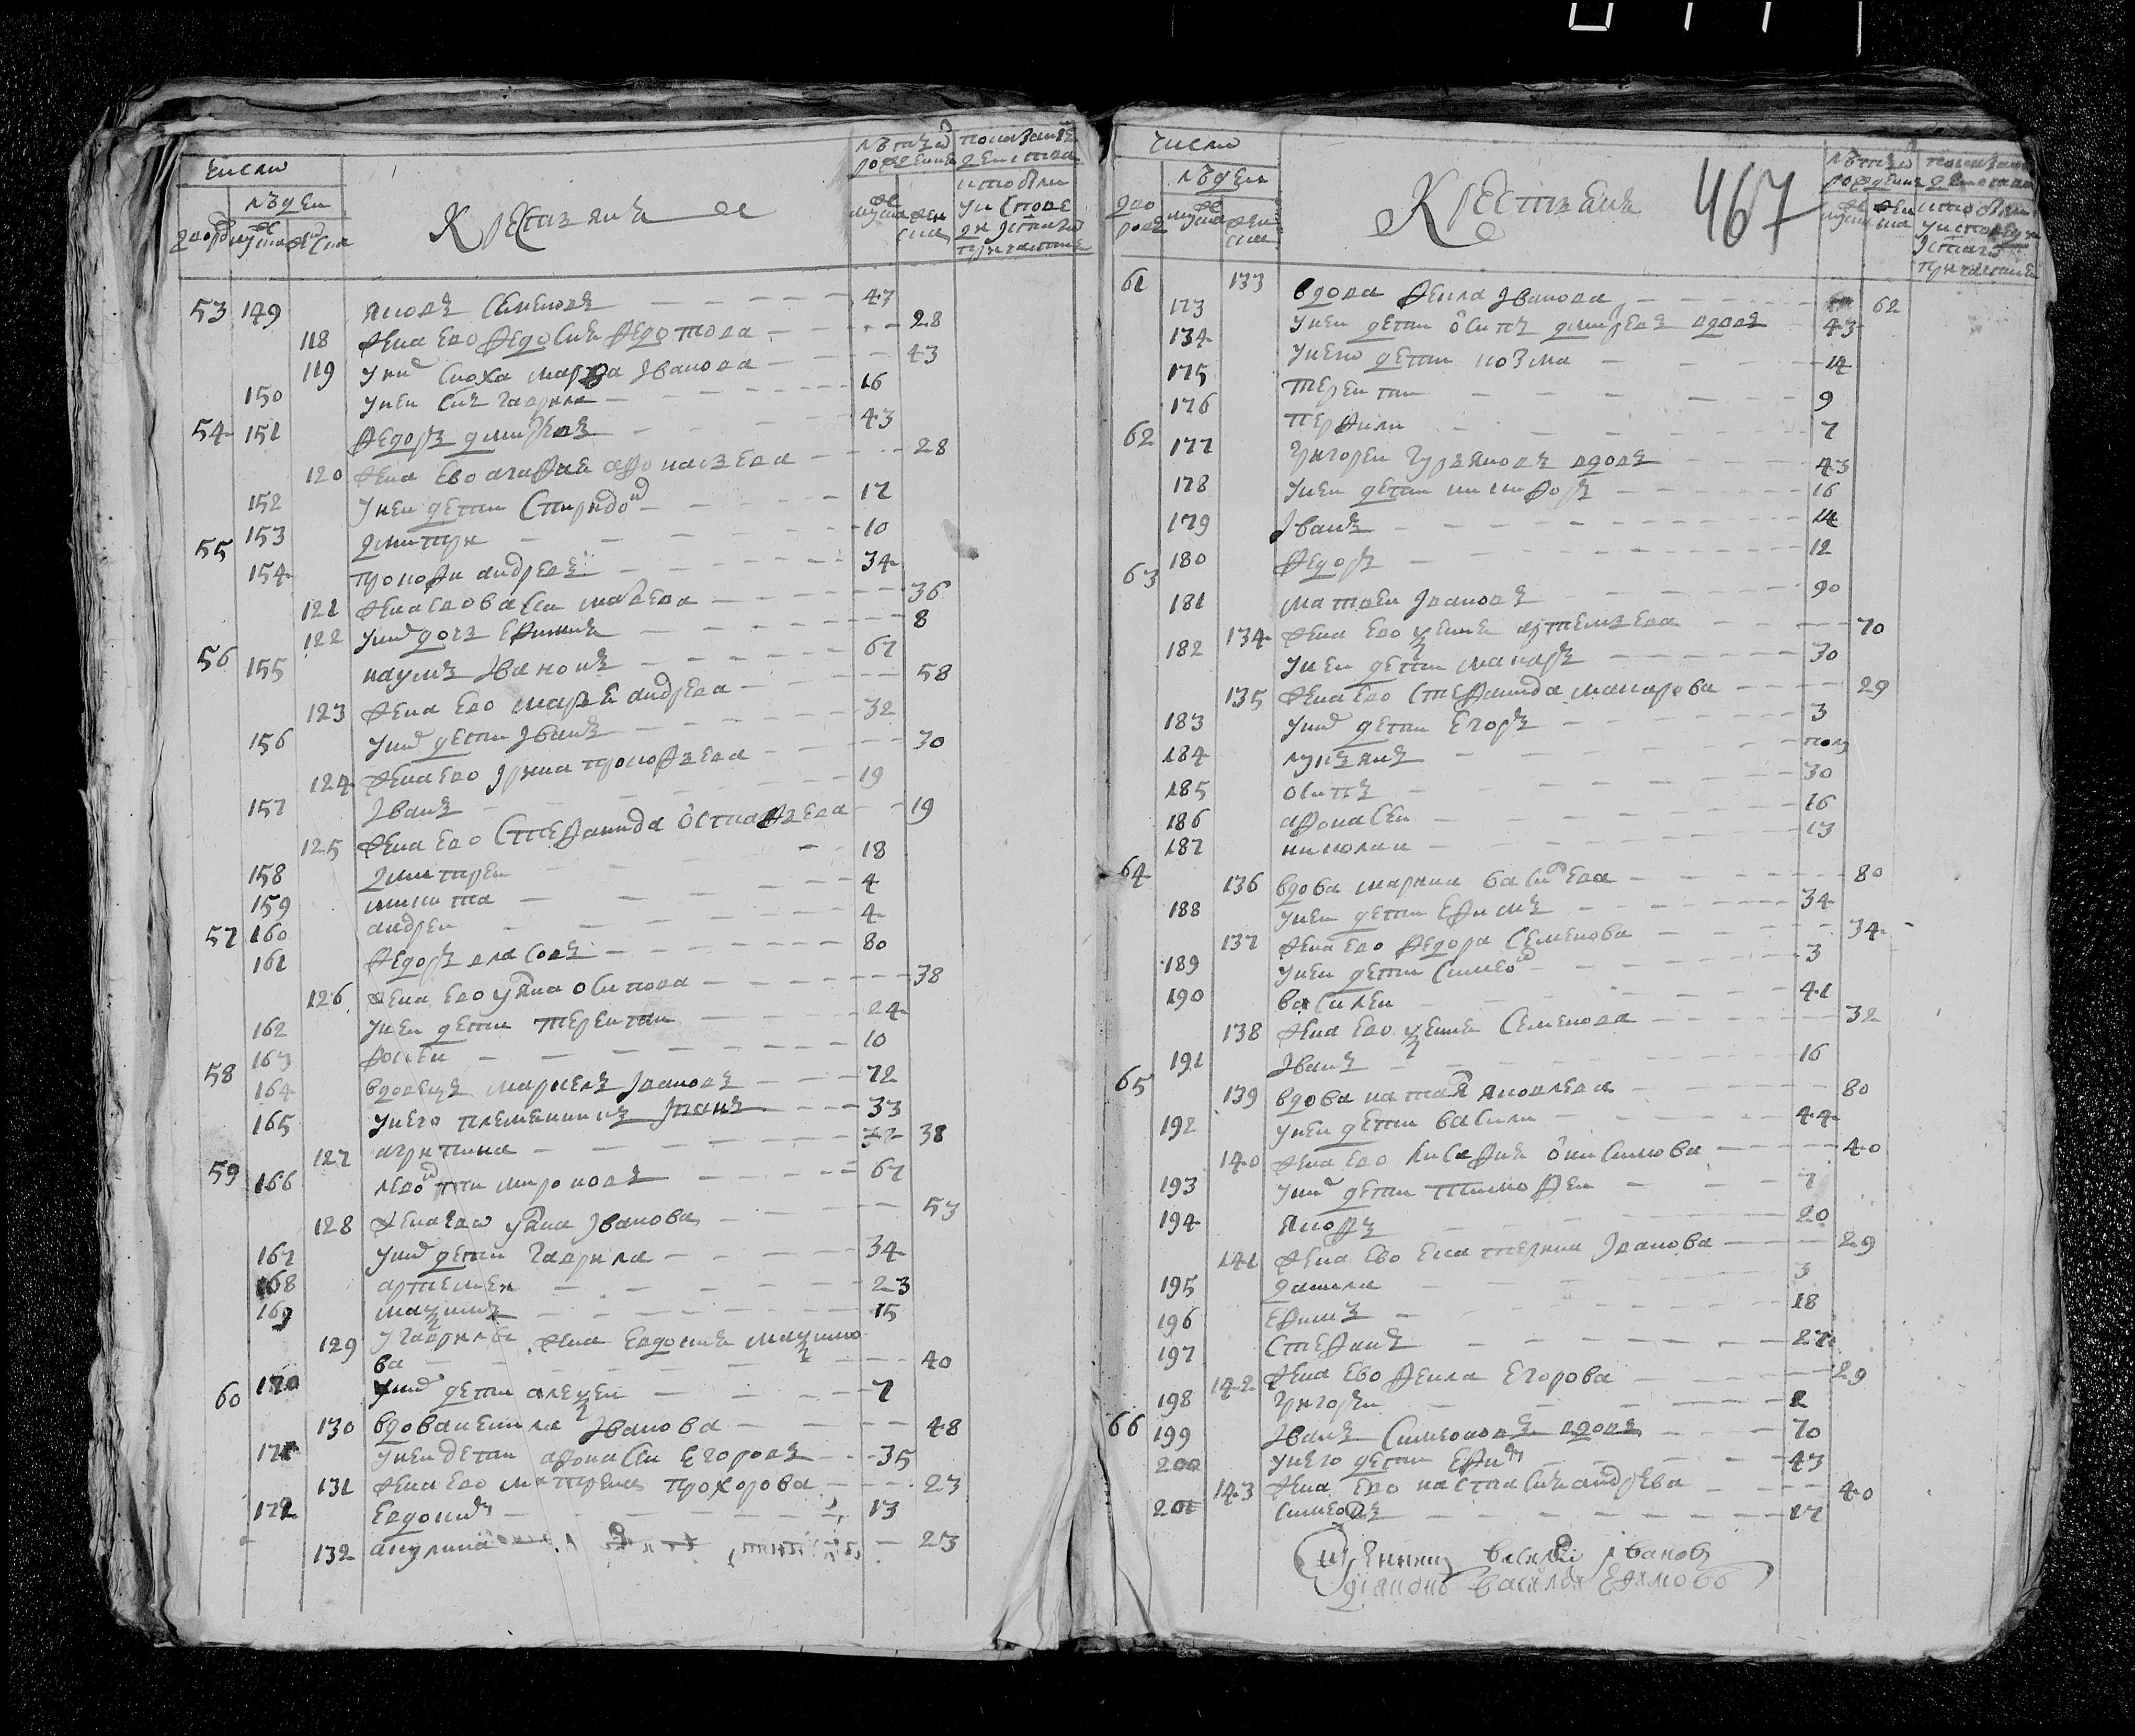 число
людеи
дворов
муска
женска
Крестьянъ
лѣта ѿ
рождения
муска
женска
показание
действа
кто были
у исповеди
и святаго
причастия
53 149 яковъ семеновъ 43
118 жена ево федосия федотова 28
119 у них сноха марфа Іванова 43
150 у неи сынъ гаврила 16
54 151 федоръ дмитревъ 43
120 жена ево агафия афонасьева 28
152 у неи дети спиридон 12
153 дмитри 10
55 154 прокофи андреевъ 34
121 жена ево васса матвева 36
122 у них дочь ефимия 8
56 155 наумъ Івановъ 67
123 жена ево марья андреева 58
156 у них дети Іванъ 32
124 жена ево Ірина прокофьева 30
157 Іванъ 19
125 жена ево стефанида остафьева 19
158 дмитреи 18
159 микита 4
57 160 андреи 4
161 федоръ власовъ 80
126 жена ево уляна осипова 38
162 у неи дети терентии 24
163 фокеи 10
58 164 вдовецъ маркелъ Івановъ 72
165 у него племенникъ Іванъ 33
127 агрипина 38
59 166 левонтии мироновъ 67
128 жена ево уляна Іванова 53
167 у них дети гаврила 34
168 артемеи 23
169 максимъ 15
129 у гаврилы жена евдокия максимо
ва 40
60 170 у них дети алексеи 7
130 вдова неонила Іванова 48
171 у неи дети афонасеи егоровъ 35
131 жена ево матрена прохорова 23
172 евдоким 13
132 акулина 23
число
людеи
дво
ровъ
муска
женска
Крестьянъ
467
лѣта ѿ
рождения
муска
женска
показание
действа
кто были
у исповеди
и святаго
причастия
61 133 вдова фекла Іванова 62
173 у неи дети осипъ дмитревъ вдовъ 43
174 у него дети козма 14
175 терентии 9
176 перфили 7
62 177 григореи гурьяновъ вдовъ 43
178 у неи дети никифоръ 16
179 Іванъ 14
180 федоръ 12
63 181 матвеи Івановъ 90
134 жена ево ксения артемьева 70
182 у неи дети макаръ 30
135 жена ево стефанида макарова 29
183 у них дети егоръ 3
184 лукьянъ полъ
185 осипъ 30
186 афонасеи 16
187 николаи 13
64 136 вдова марина васильева 80
188 у неи дети ефимъ 34
137 жена ево федора семенова 34
189 у неи дети симеон 3
190 василеи 41
138 жена ево ксения семенова 32
191 Іванъ 16
65 139 вдова наталя яковлева 80
192 у неи дети васили 44
140 жена ево лисафия онисимова 40
193 у них дети тимофеи 7
194 яковъ 20
141 жена ево екатерина Іванова 29
195 данила 3
196 ефимъ 18
197 стефанъ 27
142 жена ево фекла егорова 29
198 григореи 2
66 199 Іванъ симеоновъ вдовъ 70
200 у него дети ефим 43
143 жена ево настасия андреева 40
201 симеонъ 17
Священникъ василеи Івановъ
диаконъ василеи Ефимовъ